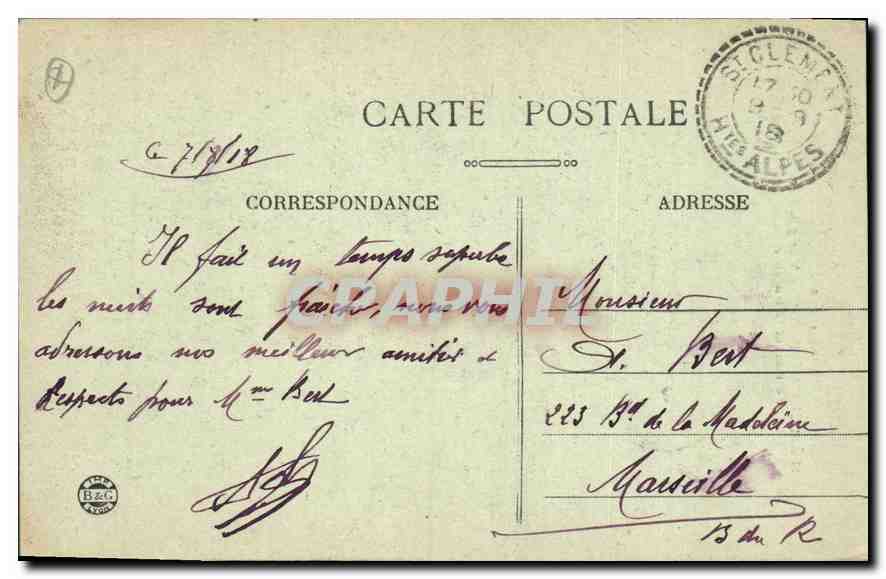 CARTE POSTALE
St CLEMENT
17 30
8 - 9
18
Htes ALPES
Ce 7/9/18
CORRESPONDANCE
ADRESSE
Il fait un temps superbe
les nuits sont fraiche, nous vous
adressons nos meilleur amitiés &
Respects pour Mme Bert
CPAPHIL
Monsieur
Bert
223 Bd de la Madeleine
Marseille
B du R
IMP
B & G
LYON